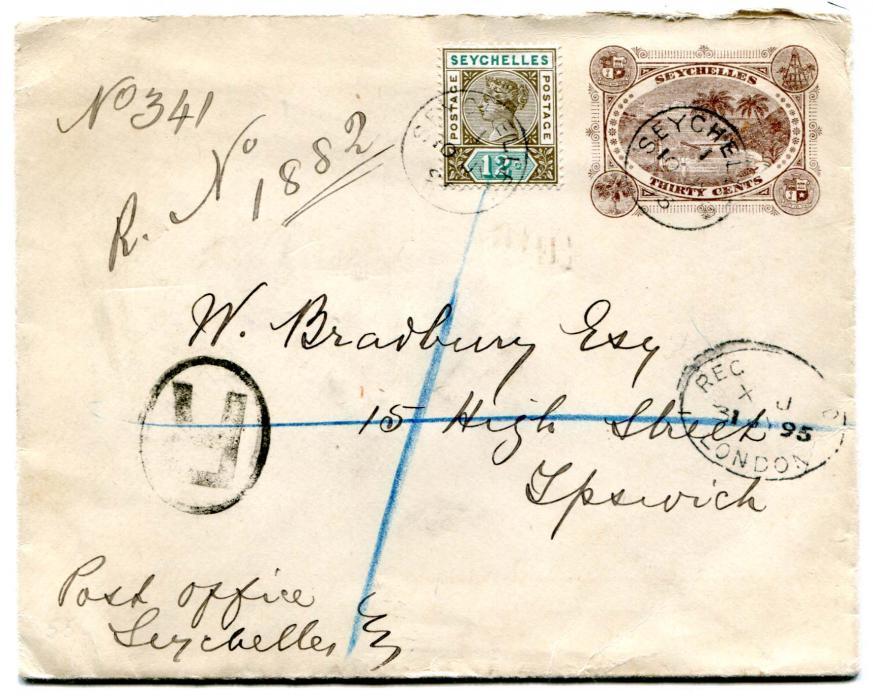 No 341
R. No 1882
SEYCHELLES
POSTAGE
POSTAGE
12c
SEYCHELLES
THIRTY CENTS
SEYCHEL
W. Bradbury Esq
15 High Street
Ipswich
REG
X
31 95
LONDON
R
Post Office
Seychelles